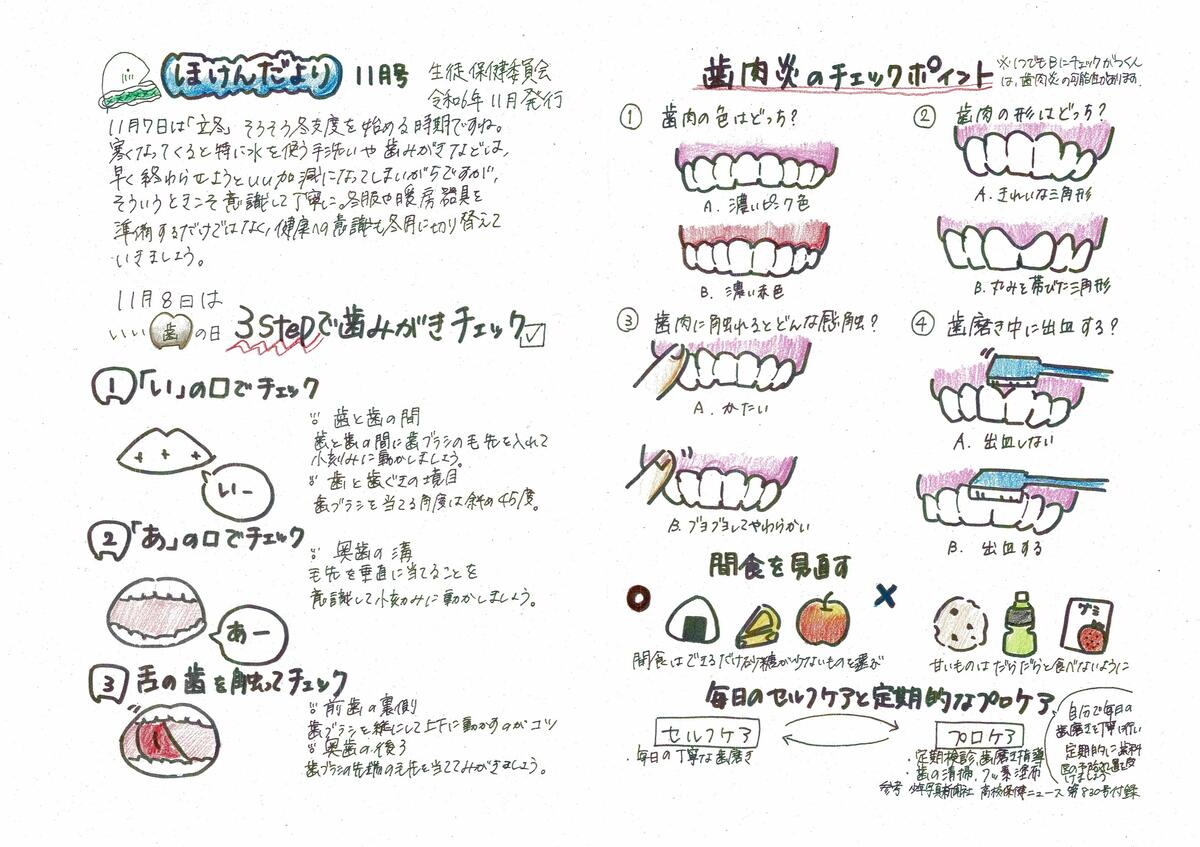 ほけんだより 11月号
生徒保健委員会
令和6年11月発行
11月7日は「立冬」そろそろ冬支度を始める時期ですね。
寒くなってくると特に水を使う手洗いや歯みがきなどは、
早く終わらせようといい加減になってしまいがちですが、
そういうときこそ意識して丁寧に。冬服や暖房器具を
準備するだけではなく、健康への意識も冬用に切り替えて
いきましょう。
11月8日は
いい歯の日
3stepで歯みがきチェック
1 「い」の口でチェック
い-
歯と歯の間
歯と歯の間に歯ブラシの毛先を入れて
小刻みに動かしましょう。
歯と歯ぐきの境目
歯ブラシを当てる角度は斜め45度。
2 「あ」の口でチェック
あー
奥歯の溝
毛先を垂直に当てることを
意識して小刻みに動かしましょう。
3 舌の歯を触ってチェック
前歯の裏側
歯ブラシを縦にして上下に動かすのがコツ
奥歯の後ろ
歯ブラシの先端の毛先を当ててみがきましょう。
歯肉炎のチェックポイント
※1つでもBにチェックがつくん
は、歯肉炎の可能性があります。
① 歯肉の色はどっち?
A. 濃いピンク色
B. 濃い赤色
② 歯肉の形はどっち?
A. きれいな三角形
B. 丸みを帯びた三角形
③ 歯肉に触れるとどんな感触?
A. かたい
B. ブヨブヨしてやわらかい
④ 歯磨き中に出血する?
A. 出血しない
B. 出血する
間食を見直す
グミ
間食はできるだけ砂糖が少ないものを選ぶ
甘いものはだらだらと食べないように
毎日のセルフケアと定期的なプロケア
セルフケア
・毎日の丁寧な歯磨き
プロケア
・定期検診、歯磨き指導
・歯の清掃、フッ素塗布
自分で毎日の
歯磨きを丁寧に行い
定期的に歯科
医の予防処置を受
けましょう
参考 少年写真新聞社 高校保健ニュース 第830号付録